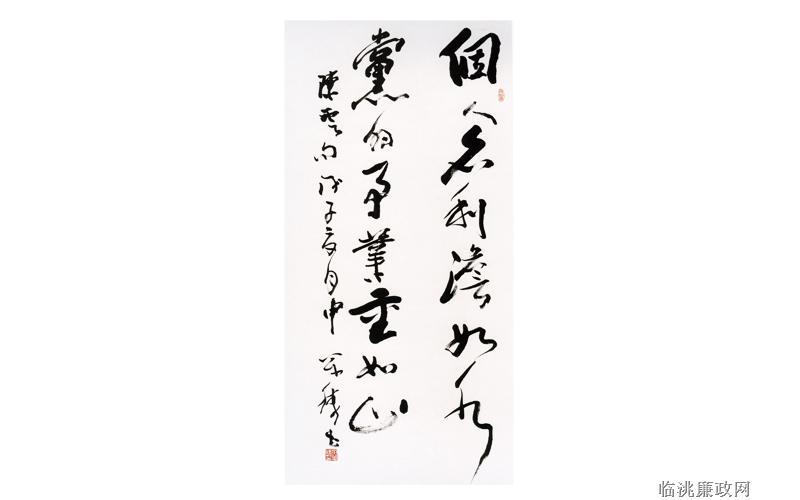 個人名利澹如水
黨的事業重如山
陳雲句戊子夏月中
书
临洮廉政网